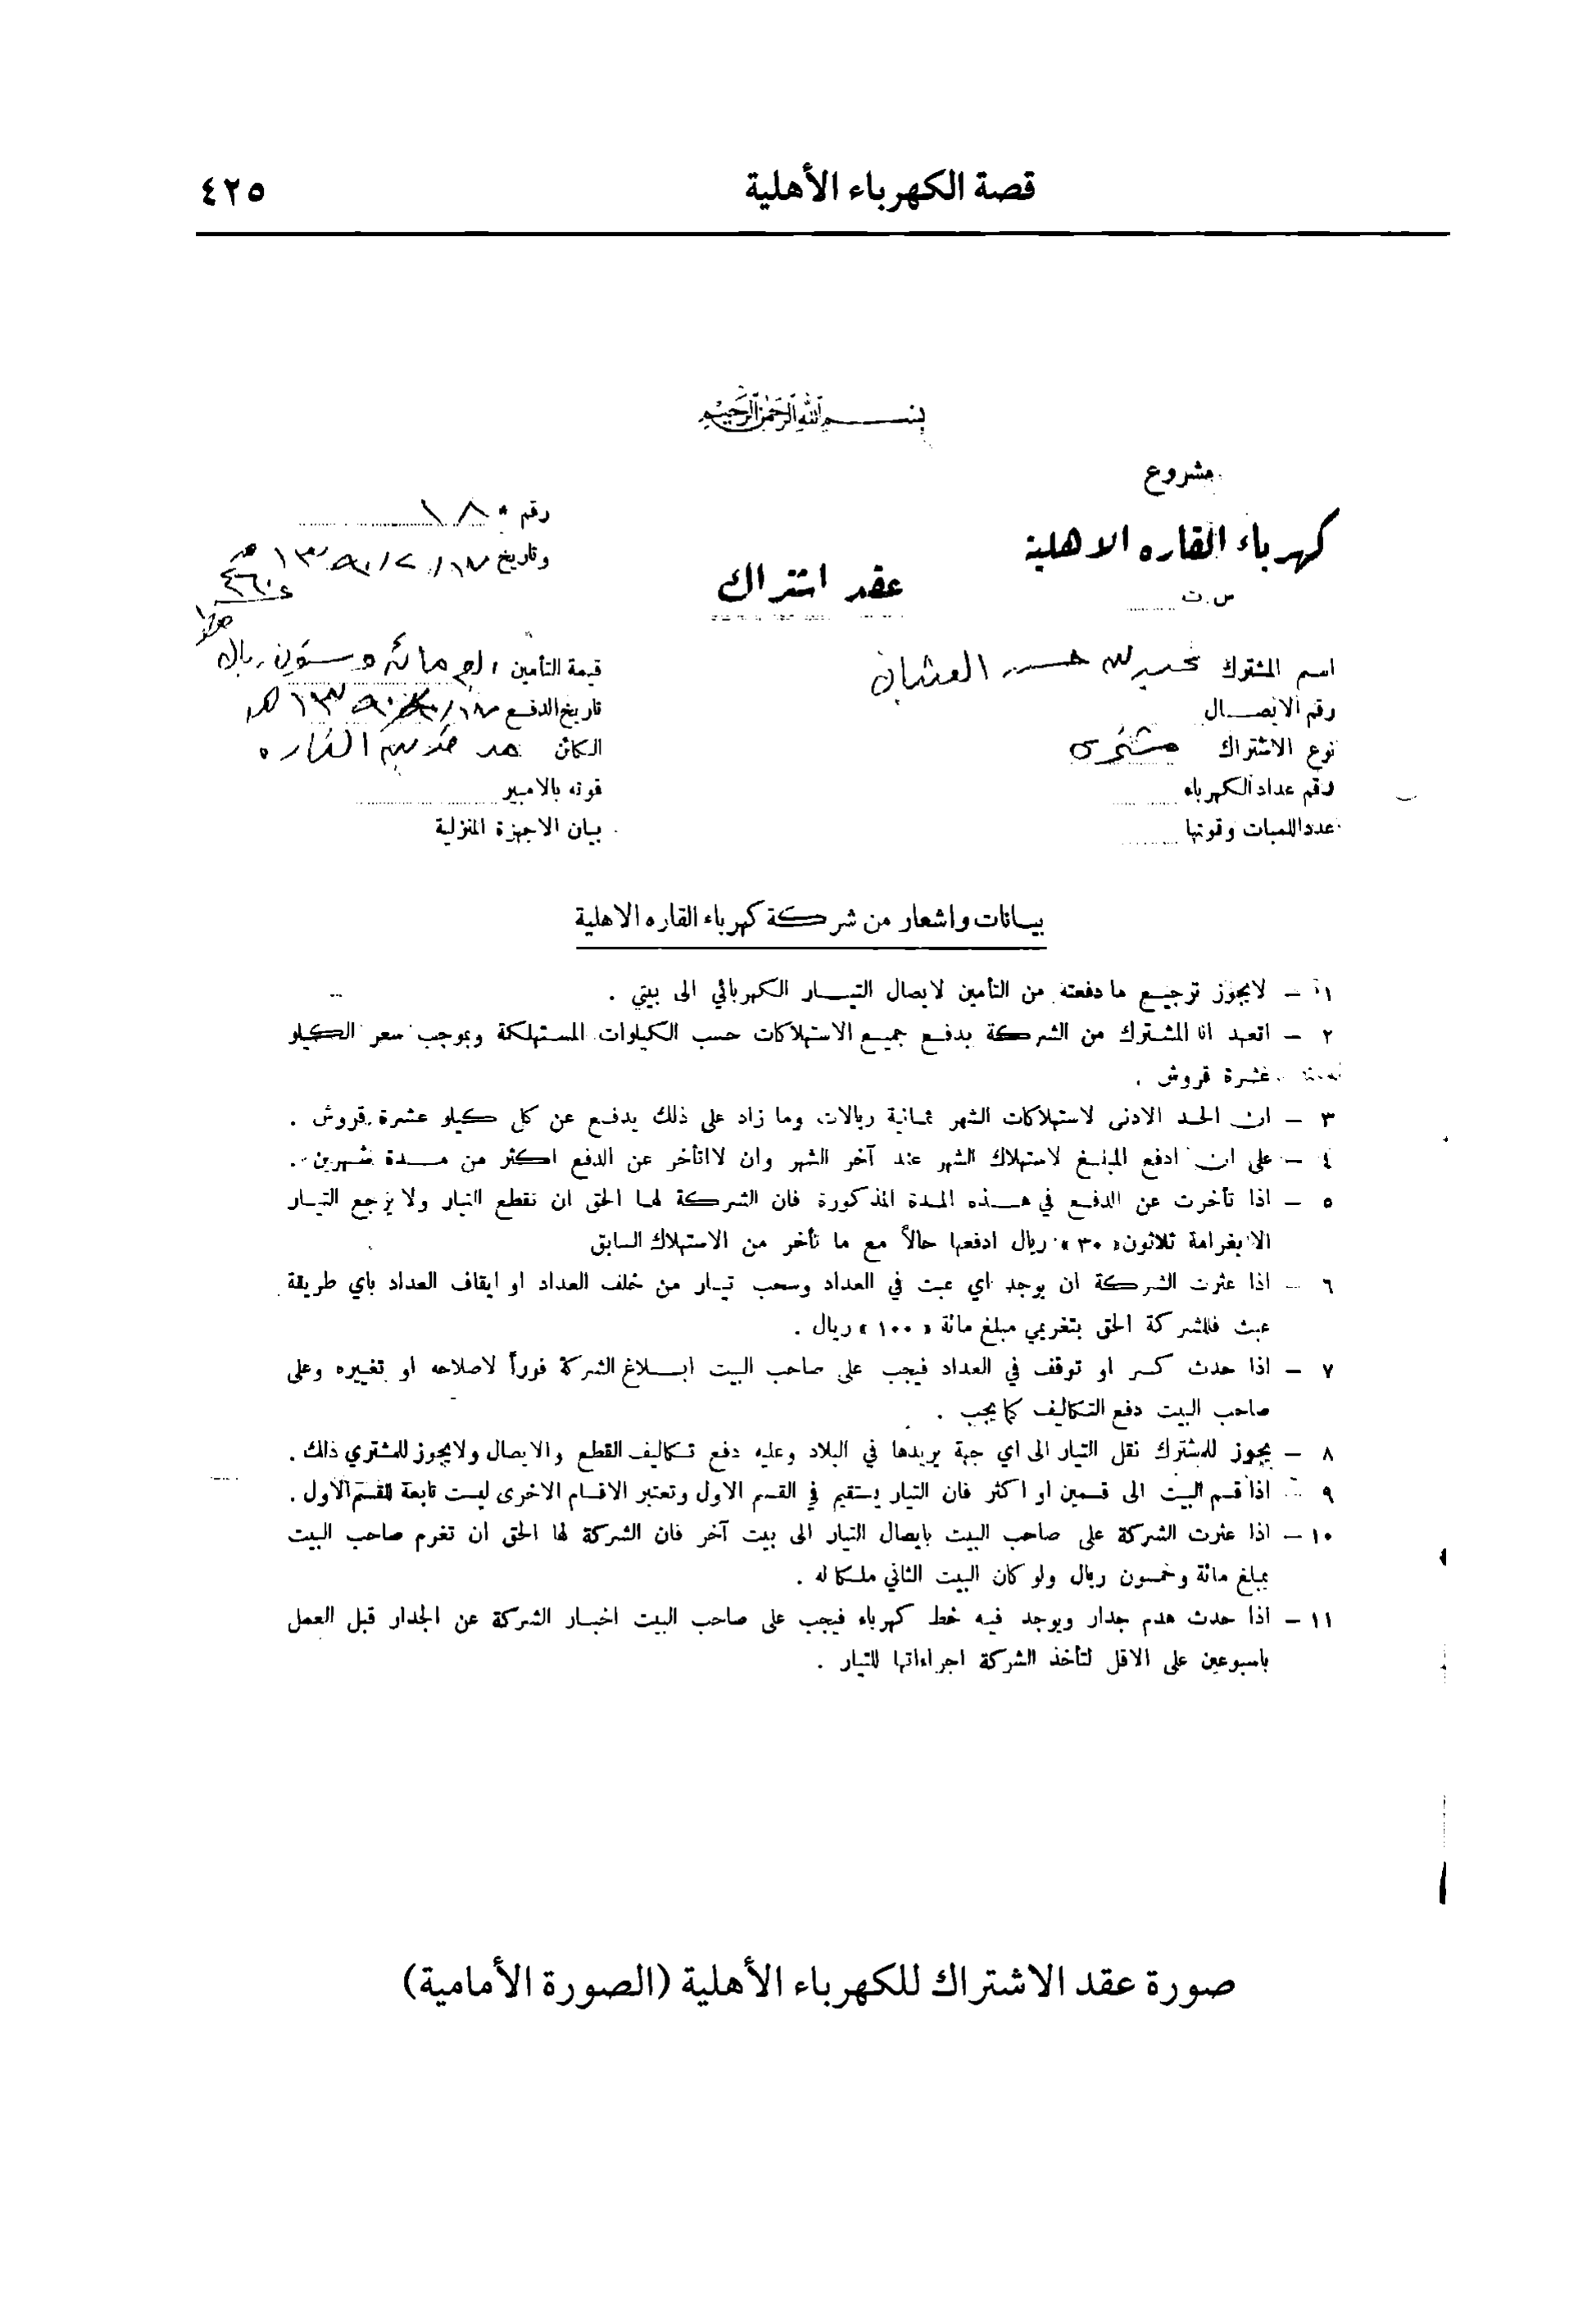 قصة الكهرباء الأهلية ٤٢٥
بسم الله الرحمن الرحيم
مشروع
كهرباء القاره الاهلية
س.ت
عقد اشتراك
رقم ١٨٠
وتاريخ ١٣٩٠/٢/١٧ هـ
اسم المشترك عبدالله حسن العشبان
قيمة التأمين اربع مائة وستون ريال
٤٦٠
رقم الايصال
تاريخ الدفع
نوع الاشتراك مشترى
الكائن القاره
رقم عداد الكهرباء
قوته بالامبير
عدد اللمبات وقوتها
بيان الاجهزة المنزلية
بيانات واشعار من شركة كهرباء القاره الاهلية
١ – لايجوز ترجيع ما دفعته من التأمين لايصال التيار الكهربائي الى بيتي .
٢ – اتعهد انا المشترك من الشركة بدفع جميع الاستهلاكات حسب الكيلوات المستهلكة وبموجب سعر الكيلو
عشرة قروش .
٣ – ان الحد الادنى لاستهلاكات الشهر ثمانية ريالات وما زاد على ذلك يدفع عن كل كيلو عشرة قروش .
٤ – على ان ادفع المبلغ لاستهلاك الشهر عند آخر الشهر وان لااتأخر عن الدفع اكثر من مدة شهرين .
٥ – اذا تأخرت عن الدفع في هذه المدة المذكورة فان الشركة لها الحق ان تقطع التيار ولا يرجع التيار
الا بغرامة ثلاثون « ٣٠ » ريال ادفعها حالاً مع ما تأخر من الاستهلاك السابق
٦ – اذا عثرت الشركة ان يوجد اي عبث في العداد وسحب تيار من خلف العداد او ايقاف العداد باي طريقة
عبث فللشركة الحق بتغريمي مبلغ مائة « ١٠٠ » ريال .
٧ – اذا حدث كسر او توقف في العداد فيجب على صاحب البيت ابلاغ الشركة فوراً لاصلاحه او تغييره وعلى
صاحب البيت دفع التكاليف كما يجب .
٨ – يجوز للمشترك نقل التيار الى اي جهة يريدها في البلاد وعليه دفع تكاليف القطع والايصال ولايجوز للمشتري ذلك .
٩ – اذا قسم البيت الى قسمين او اكثر فان التيار يستقيم في القسم الاول وتعتبر الاقسام الاخرى ليست تابعة للقسم الاول .
١٠ – اذا عثرت الشركة على صاحب البيت بايصال التيار الى بيت آخر فان الشركة لها الحق ان تغرم صاحب البيت
بمبلغ مائة وخمسون ريال ولو كان البيت الثاني ملكا له .
١١ – اذا حدث هدم جدار ويوجد فيه خط كهرباء فيجب على صاحب البيت اخبار الشركة عن الجدار قبل العمل
باسبوعين على الاقل لتأخذ الشركة اجراءاتها للتيار .
صورة عقد الاشتراك للكهرباء الأهلية (الصورة الأمامية)